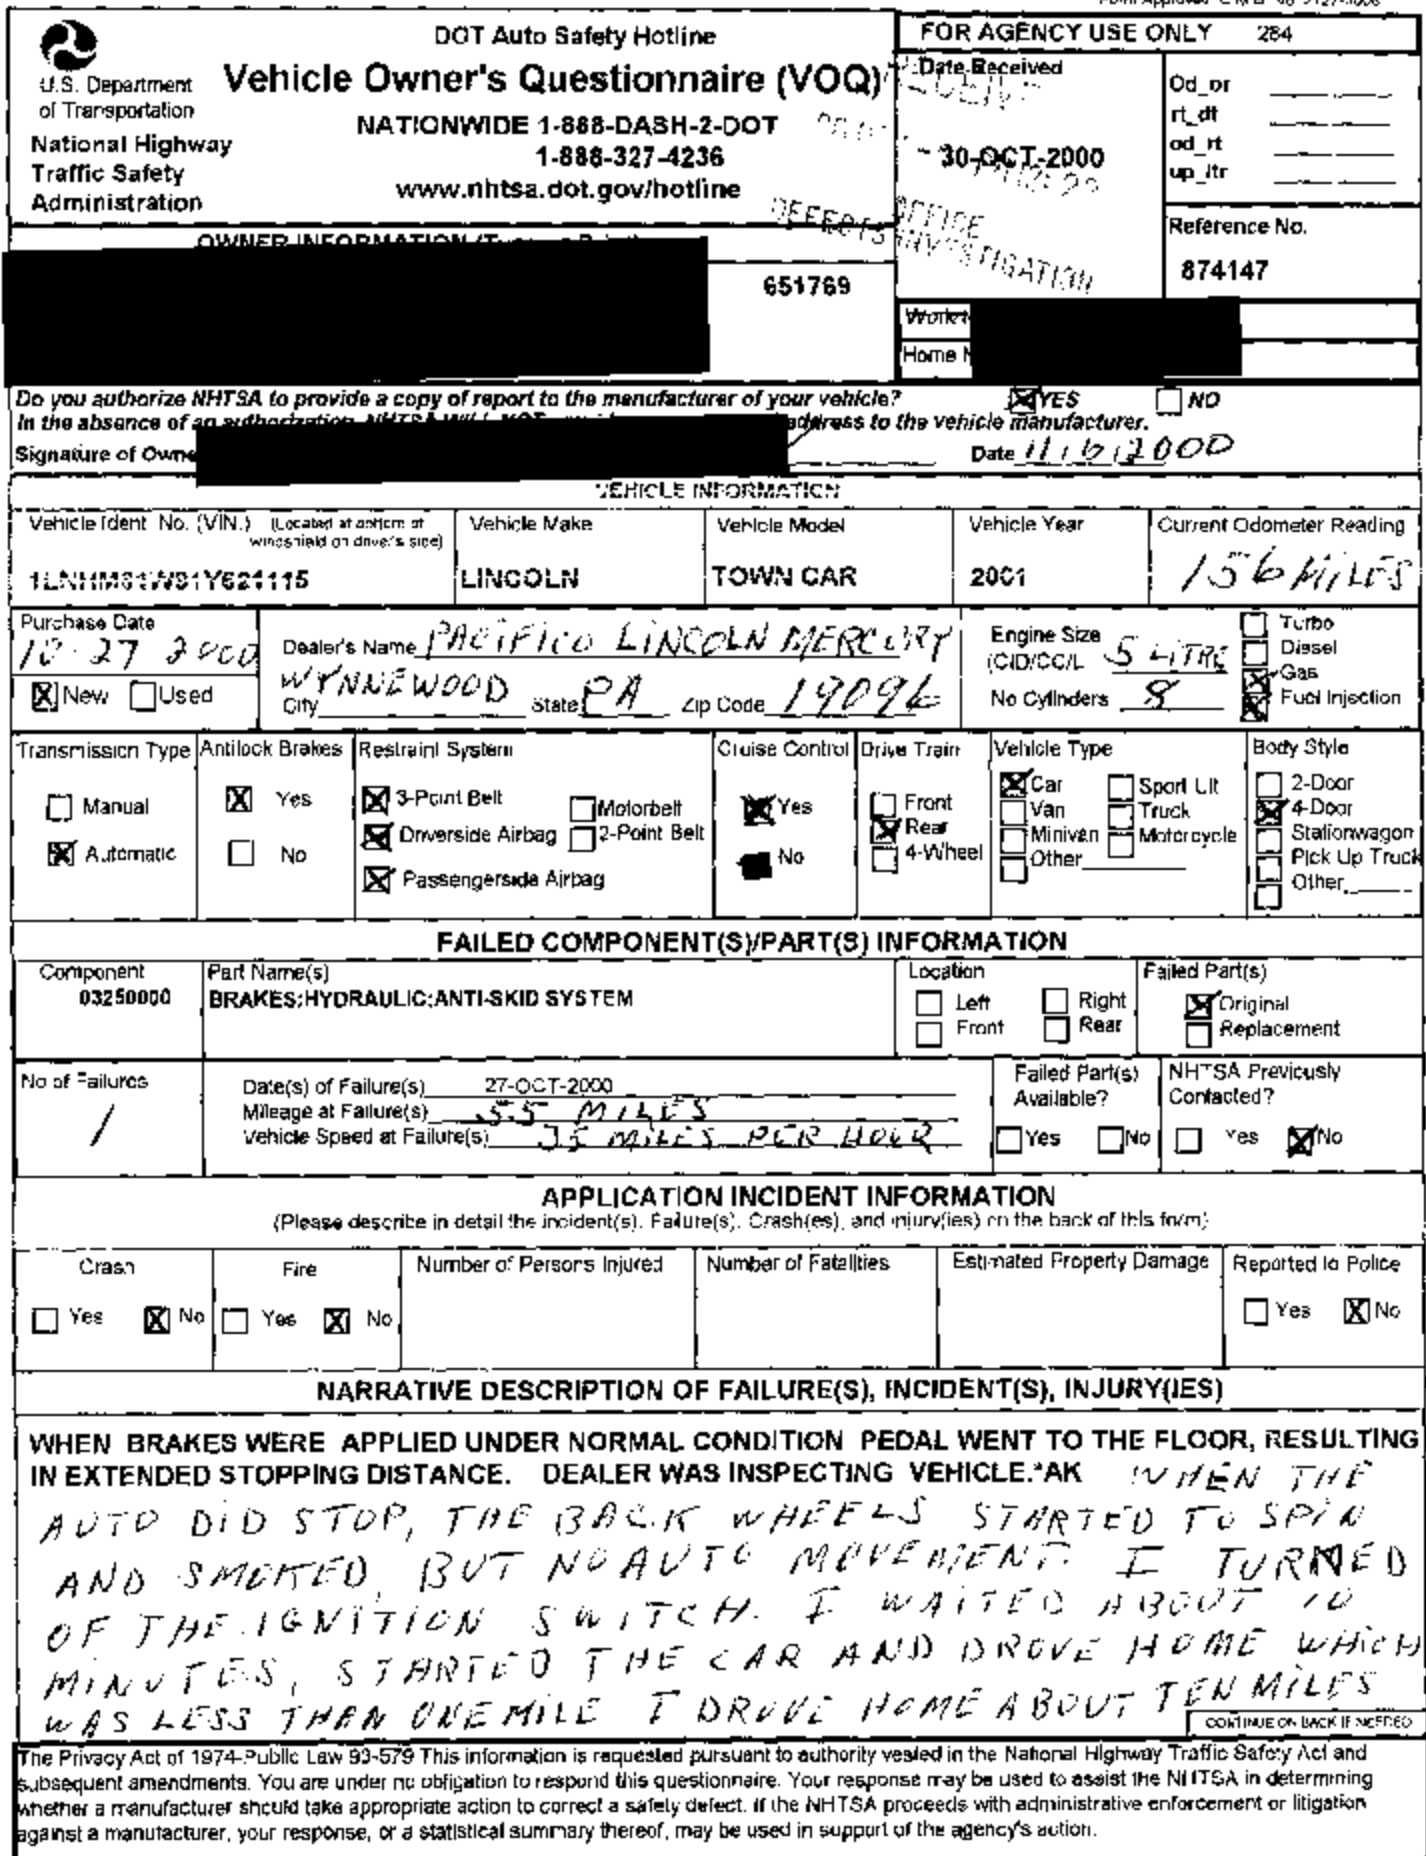 DOT Auto Safety Hotline
Vehicle Owner's Questionnaire (VOQ)
NATIONWIDE 1-888-DASH-2-DOT
1-888-327-4236
www.nhtsa.dot.gov/hotline
U.S. Department
of Transportation
National Highway
Traffic Safety
Administration
FOR AGENCY USE ONLY 284
Date Received
30-OCT-2000
OFFICE
DEFECTS INVESTIGATION
Od_or
rt_dt
od_rt
up_ltr
Reference No.
874147
OWNER INFORMATION
651769
Work
Home N
Do you authorize NHTSA to provide a copy of report to the manufacturer of your vehicle? YES NO
In the absence of an authorization, NHTSA WILL NOT address to the vehicle manufacturer.
Signature of Owne Date 11/6/2000
VEHICLE INFORMATION
Vehicle Ident. No. (VIN.) (Located at bottom of windshield on driver's side)
Vehicle Make
LINCOLN
Vehicle Model
TOWN CAR
Vehicle Year
2001
Current Odometer Reading
156 MILES
Purchase Date
10-27 2000
New Used
Dealer's Name PACIFICO LINCOLN MERCURY
WYNNEWOOD
City State PA Zip Code 19096
Engine Size
(CID/CC/L 5 LITRE
No Cylinders 8
Turbo
Diesel
Gas
Fuel Injection
Transmission Type
Manual
Automatic
Antilock Brakes
Yes
No
Restraint System
3-Point Belt Motorbelt
Driverside Airbag 2-Point Belt
Passengerside Airbag
Cruise Control
Yes
No
Drive Train
Front
Rear
4-Wheel
Vehicle Type
Car Sport Ult
Van Truck
Minivan Motorcycle
Other
Body Style
2-Door
4-Door
Stationwagon
Pick Up Truck
Other
FAILED COMPONENT(S)/PART(S) INFORMATION
Component
03250000
Part Name(s)
BRAKES:HYDRAULIC:ANTI-SKID SYSTEM
Location
Left Right
Front Rear
Failed Part(s)
Original
Replacement
No of Failures
1
Date(s) of Failure(s) 27-OCT-2000
Mileage at Failure(s) 55 MILES
Vehicle Speed at Failure(s) 35 MILES PER HOUR
Failed Part(s)
Available?
Yes No
NHTSA Previously
Contacted?
Yes No
APPLICATION INCIDENT INFORMATION
(Please describe in detail the incident(s), Failure(s), Crash(es), and injury(ies) on the back of this form)
Crash
Yes No
Fire
Yes No
Number of Persons Injured
Number of Fatalities
Estimated Property Damage
Reported to Police
Yes No
NARRATIVE DESCRIPTION OF FAILURE(S), INCIDENT(S), INJURY(IES)
WHEN BRAKES WERE APPLIED UNDER NORMAL CONDITION PEDAL WENT TO THE FLOOR, RESULTING
IN EXTENDED STOPPING DISTANCE. DEALER WAS INSPECTING VEHICLE.*AK WHEN THE
AUTO DID STOP, THE BACK WHEELS STARTED TO SPIN
AND SMOKED, BUT NO AUTO MOVEMENT. I TURNED
OF THE IGNITION SWITCH. I WAITED ABOUT 10
MINUTES, STARTED THE CAR AND DROVE HOME WHICH
WAS LESS THAN ONE MILE I DROVE HOME ABOUT TEN MILES
CONTINUE ON BACK IF NEEDED
The Privacy Act of 1974-Public Law 93-579 This information is requested pursuant to authority vested in the National Highway Traffic Safety Act and
subsequent amendments. You are under no obligation to respond this questionnaire. Your response may be used to assist the NHTSA in determining
whether a manufacturer should take appropriate action to correct a safety defect. If the NHTSA proceeds with administrative enforcement or litigation
against a manufacturer, your response, or a statistical summary thereof, may be used in support of the agency's action.